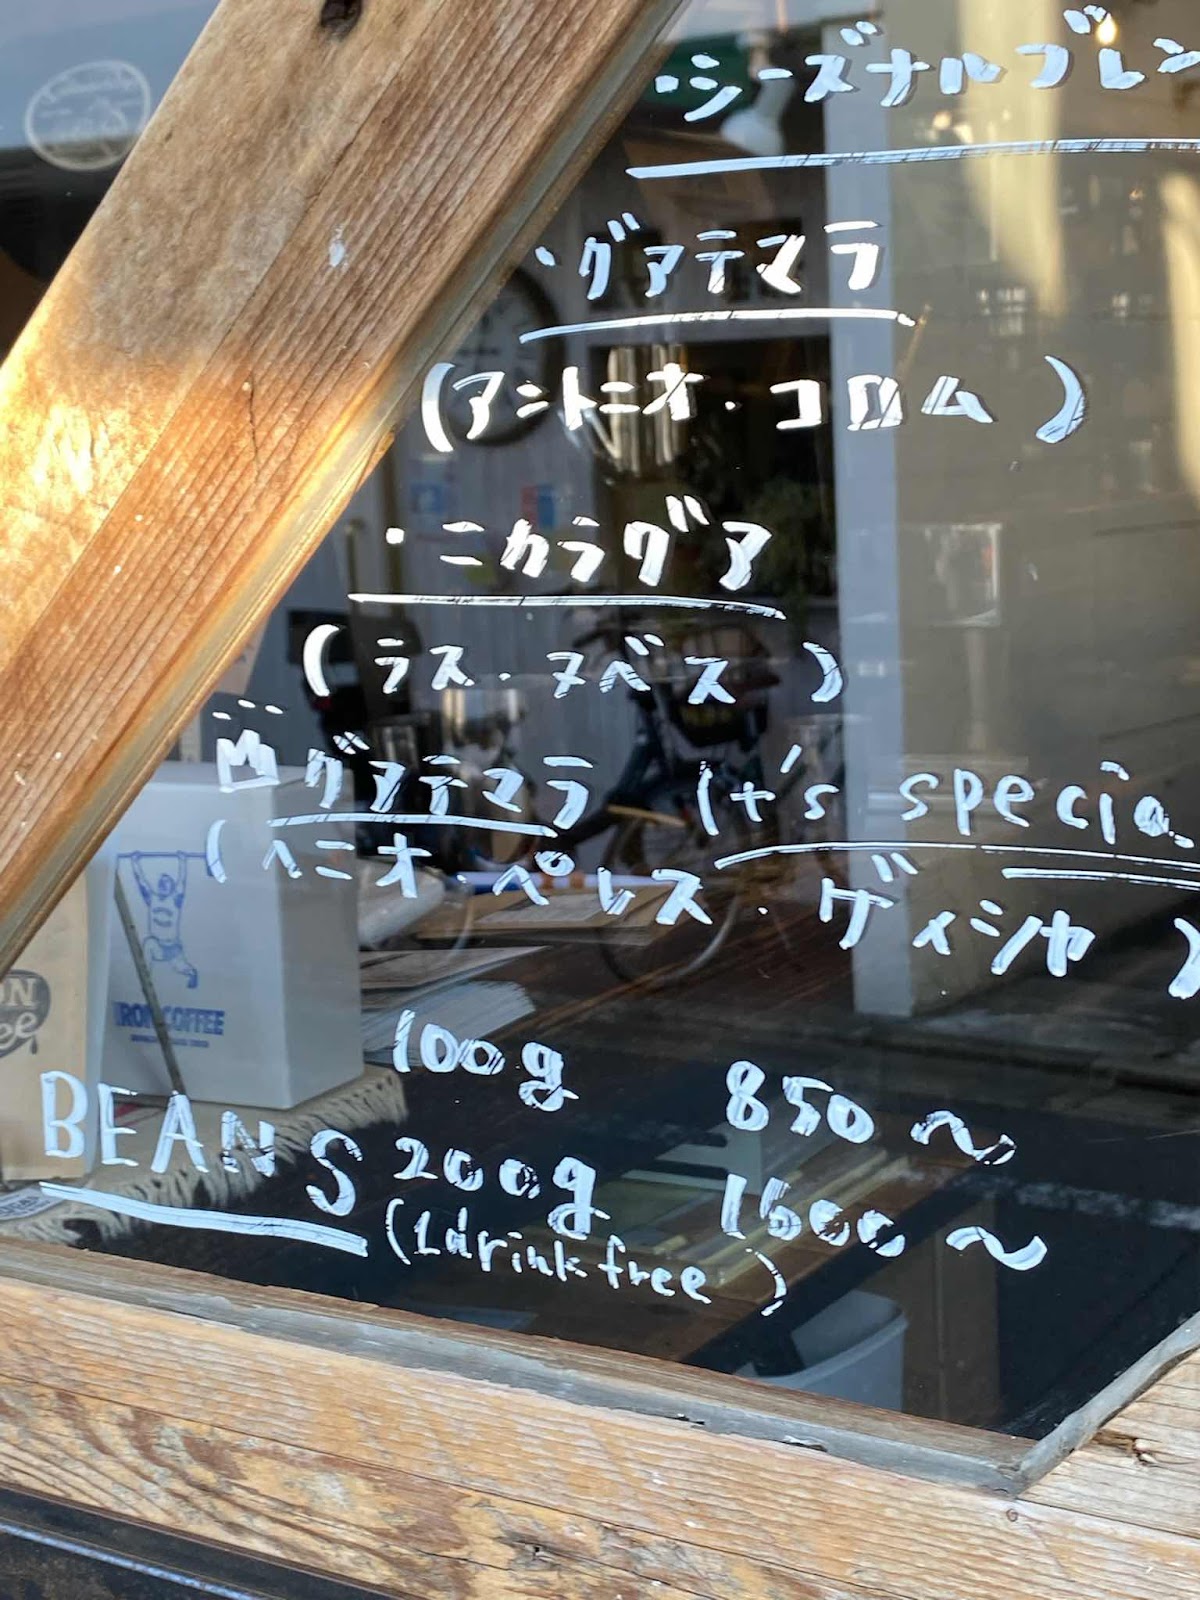 ・シーズナルブレン
・グアテマラ
(アントニオ・コロム)
・ニカラグア
(ラス・ヌベス)
グアテマラ It's specia
(ヘニオ・ペレス・ゲイシャ)
IRON COFFEE
100g 850～
BEANS 200g 1600～
(1drink free)